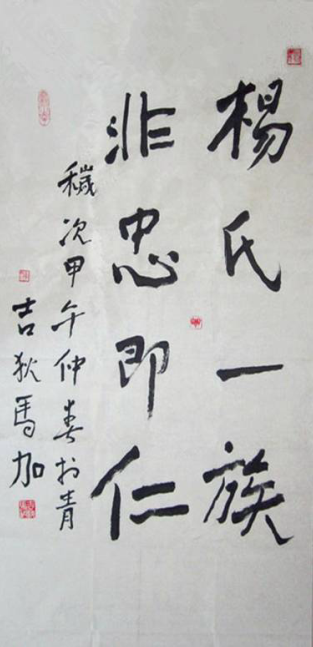 杨氏一族
非忠即仁
穢次甲午仲春於青
吉狄馬加